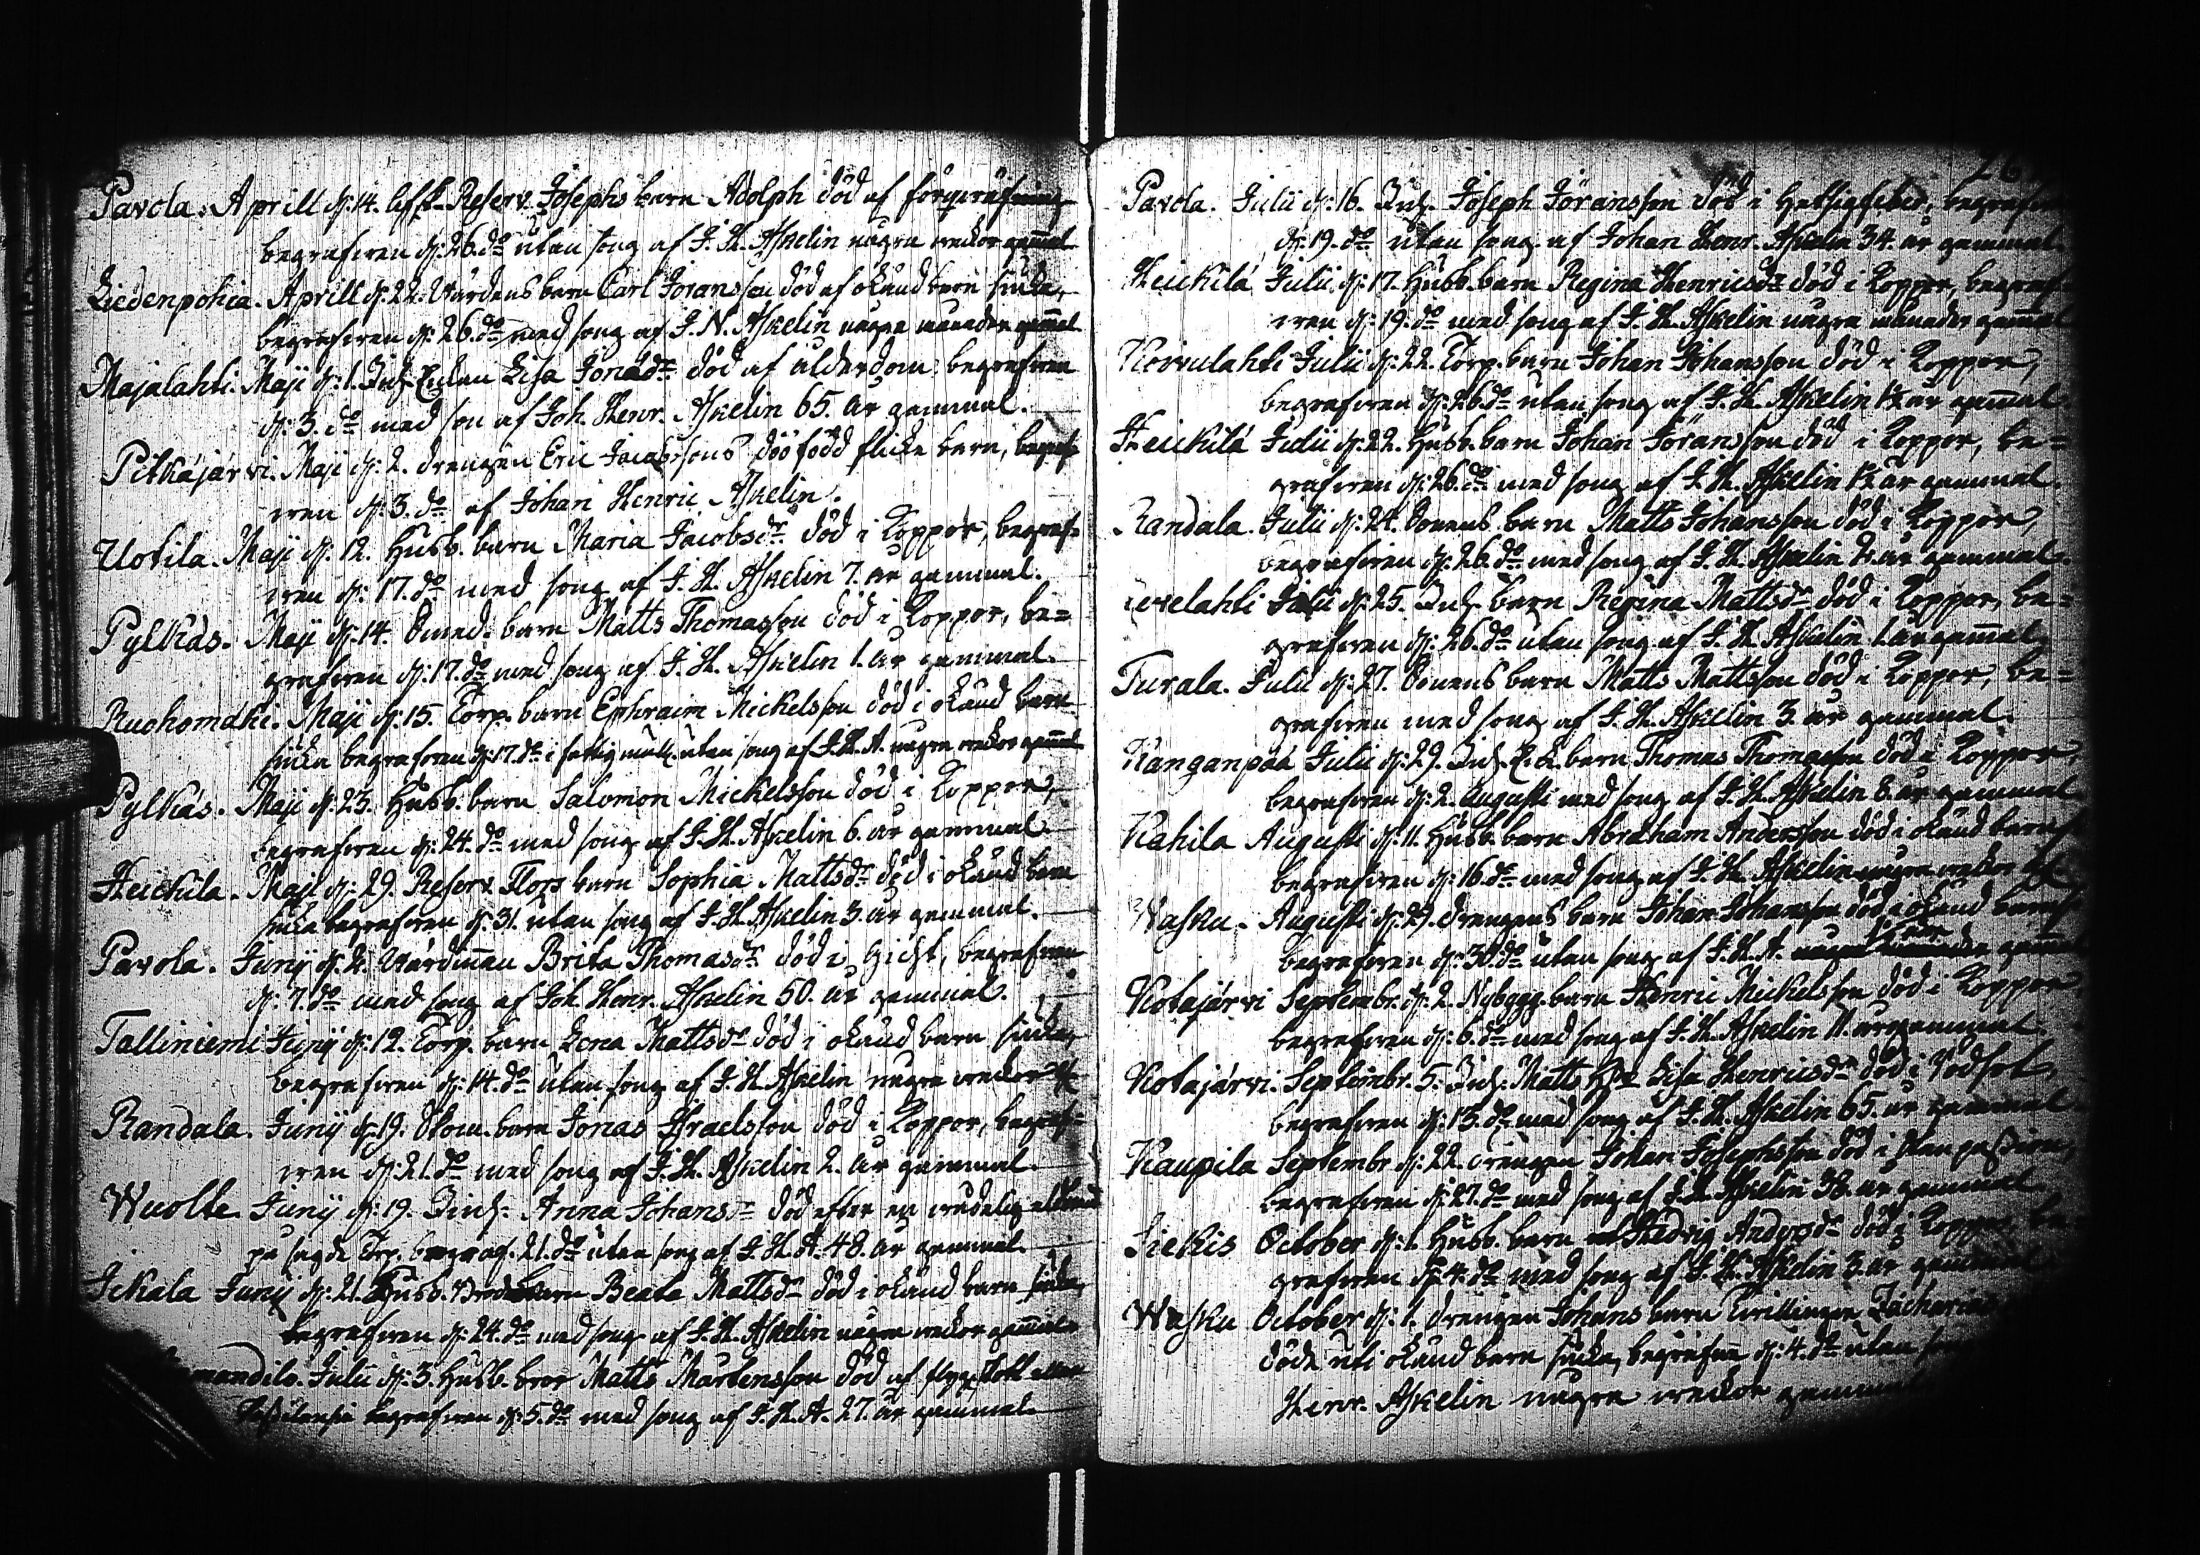 Pavola. Aprill d: 14. Reserv. Josephs barn Adolph död af
begrafwen d: 26. do utan song af J. H. Askelin några weckor gamal
Liedenpohia. Aprill d: 22. Wärdens barn Carl Joransson död af okänd barn siuka,
begrafwen d: 26. do med song af J. H. Askelin några månader gamal
Majalahti. Maji d: 1. Inh. Enkan Lisa Jonædr död af ålderdom begrafwen
d: 3. do med son af Joh. Henr. Askelin 65. år gammal.
Pitkäjärwi. Maji d: 2. drengen Eric Jacobssons dödfödd flicke barn, begraf-
wen d: 3. do af Johan Henric Askelin.
Uotila. Maji d: 12. Husb. barn Maria Jacobsdr död i Koppor, begraf-
wen d: 17. do med song af J. H. Askelin 7. år gammal.
Pylkäs. Maji d: 14. barn Matts Thomasson död i Koppor, be=
grafwen d: 17. do med song af J. H. Askelin 1. år gammal.
Ruohomäki. Maji d: 15. Torp. barn Ephraim Mickelsson död i okänd barn
siuka begrafwen d: 17. do i utan song af J. H. A. några weckor gamal
Pylkäs. Maji d: 23. Husb. barn Salomon Mickelsson död i Koppor,
begrafwen d: 24. do med song af J. H. Askelin 6. år gammal.
Heickilä. Maji d: 29. Reserv. Flors barn Sophia Mattsdr död i okänd barn
siuka begrafwen d: 31. utan song af J. H. Askelin 3. år gammal.
Pavola. Junij d: 2. Brita Thomasdr död i gickt, begrafwen
d: 7. do med song af Joh. Henr. Askelin 50. år gammal.
Talliniemi Junij d: 12. Torp. barn Lena Mattsdr död i okänd barn siuka,
begrafwen d: 14. do utan song af J. H. Askelin några weckor
Randala. Junij d: 19. barn Jonas Israelsson död i Koppor, begraf-
wen d: 21. do med song af J. H. Askelin 2. år gammal.
Wuolle. Junij d: 19. Inh. Anna Johansdr död efter en
på sagde Torp. begraf. 21. do utan song af J. H. A. 48. år gammal.
Ickala Junij d: 21. Husb. barn Beata Mattsdr död i okänd barn siuka,
begrafwen d: 24. do med song af J. H. Askelin några weckor gammal.
Julii d: 3. Husb. bror Matts Mårtensson död af
begrafwen d: 5. do med song af J. H. A. 27. år gammal.
Pavola. Julii d: 16. Inh. Joseph Jöransson död i begrafwen
d: 19. do utan song af Johan Henr. Askelin 34. år gammal.
Heickilä Julii d: 17. Husb. barn Regina Henricsdr död i Koppor, begraf-
wen d: 19. do med song af J. H. Askelin några månader gammal
Koivulahti Julii d: 22. Torp. barn Johan Johansson död i Koppor,
begrafwen d: 26. do utan song af J. H. Askelin 1½ år gammal.
Heickilä Julii d: 22. Husb. barn Johan Jöransson död i Koppor, be=
grafwen d: 26. do med song af J. H. Askelin 1½ år gammal.
Randala. Julii d: 24. Bonens barn Matts Johansson död i Koppor,
begrafwen d: 26. do med song af J. H. Askelin ½ år gammal.
Julii d: 25. Inh. barn Regina Mattsdr död i Koppor, be=
grafwen d: 26. do utan song af J. H. Askelin 1. år gammal
Turala. Julii d: 27. Bonens barn Matts Mattsson död i Koppor, be=
grafwen med song af J. H. Askelin 3. år gammal.
Kanganpää Julii d: 29. Inh. barn Thomas Thomasson död i Koppor,
begrafwen d: 2. Augusti med song af J. H. Askelin 8. år gammal
Kahila Augusti d: 11. Husb. barn Abraham Andersson död i okänd barn
begrafwen d: 16. do med song af J. H. Askelin några weckor
Wasku. Augusti d: 29. drengens barn Johan Johansson död i okänd barn
begrafwen d: 30. do utan song af J. H. A. gammal
Kotajärvi Septembr. d: 2. Nybygg. barn Henric Mickelsson död i Koppor,
begrafwen d: 6. do med song af J. H. Askelin 11. år gammal.
Kotajärvi. Septembr. 5. Inh. Matts Lisa Henricsdr död i rödsot,
begrafwen d: 13. do med song af J. H. Askelin 65. år gammal.
Kaupila Septembr d: 22. drengen Johan Josephsson död i
begrafwen d: 27. do med song af J. H. Askelin 38. år gammal
October d: 1. Husb. barn Hedvig Andersdr död i Koppor, be-
grafwen d: 4. do med song af J. H. Askelin 3. år gammal
Wasku October d: 1. drengen Johans barn Twillingar Zacharias
döde uti okänd barn siuka, begrafne d: 4. do utan song
Henr. Askelin några weckor gammal